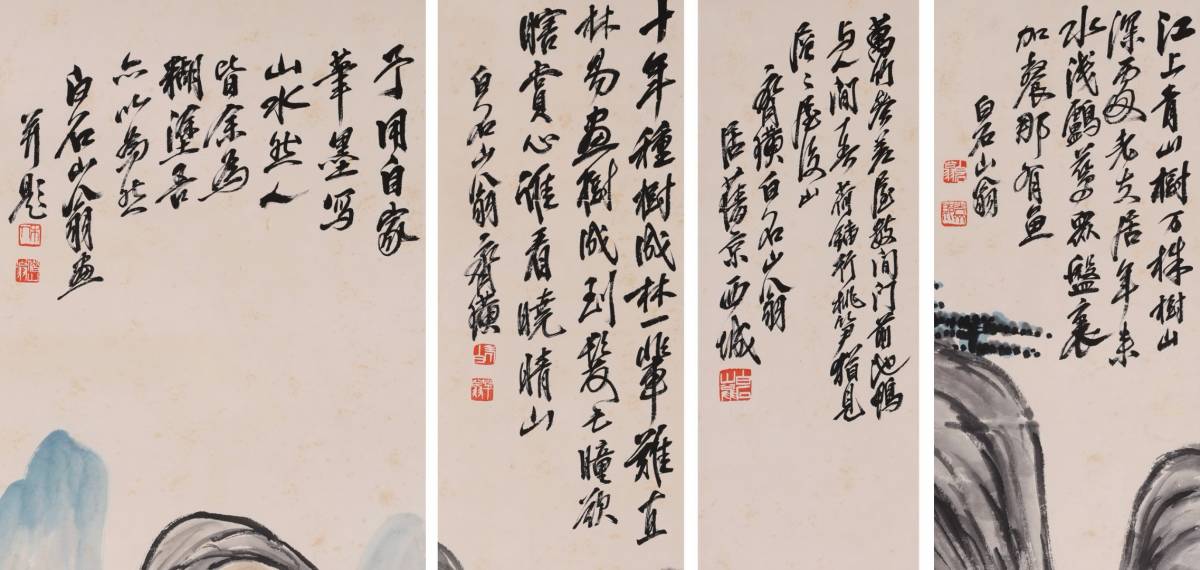 江上青山樹万株樹山
深處老夫居年来
水淺鸕鶿眾盤裏
加餐那有魚
白石山翁
萬竹參差屋數間門前池鴨
與人閒春荷鋤行挑筍猶見
屋後山
齊璜白石山翁
居舊京西城
十年種樹成林一輩難直
林易畫樹成到髮亡瞳欲
瞎賞心誰看曉晴山
白石山翁齊璜
予用自家
筆墨寫
山水然人
皆余為
糊塗吾
亦以為然
白石山翁畫
并題